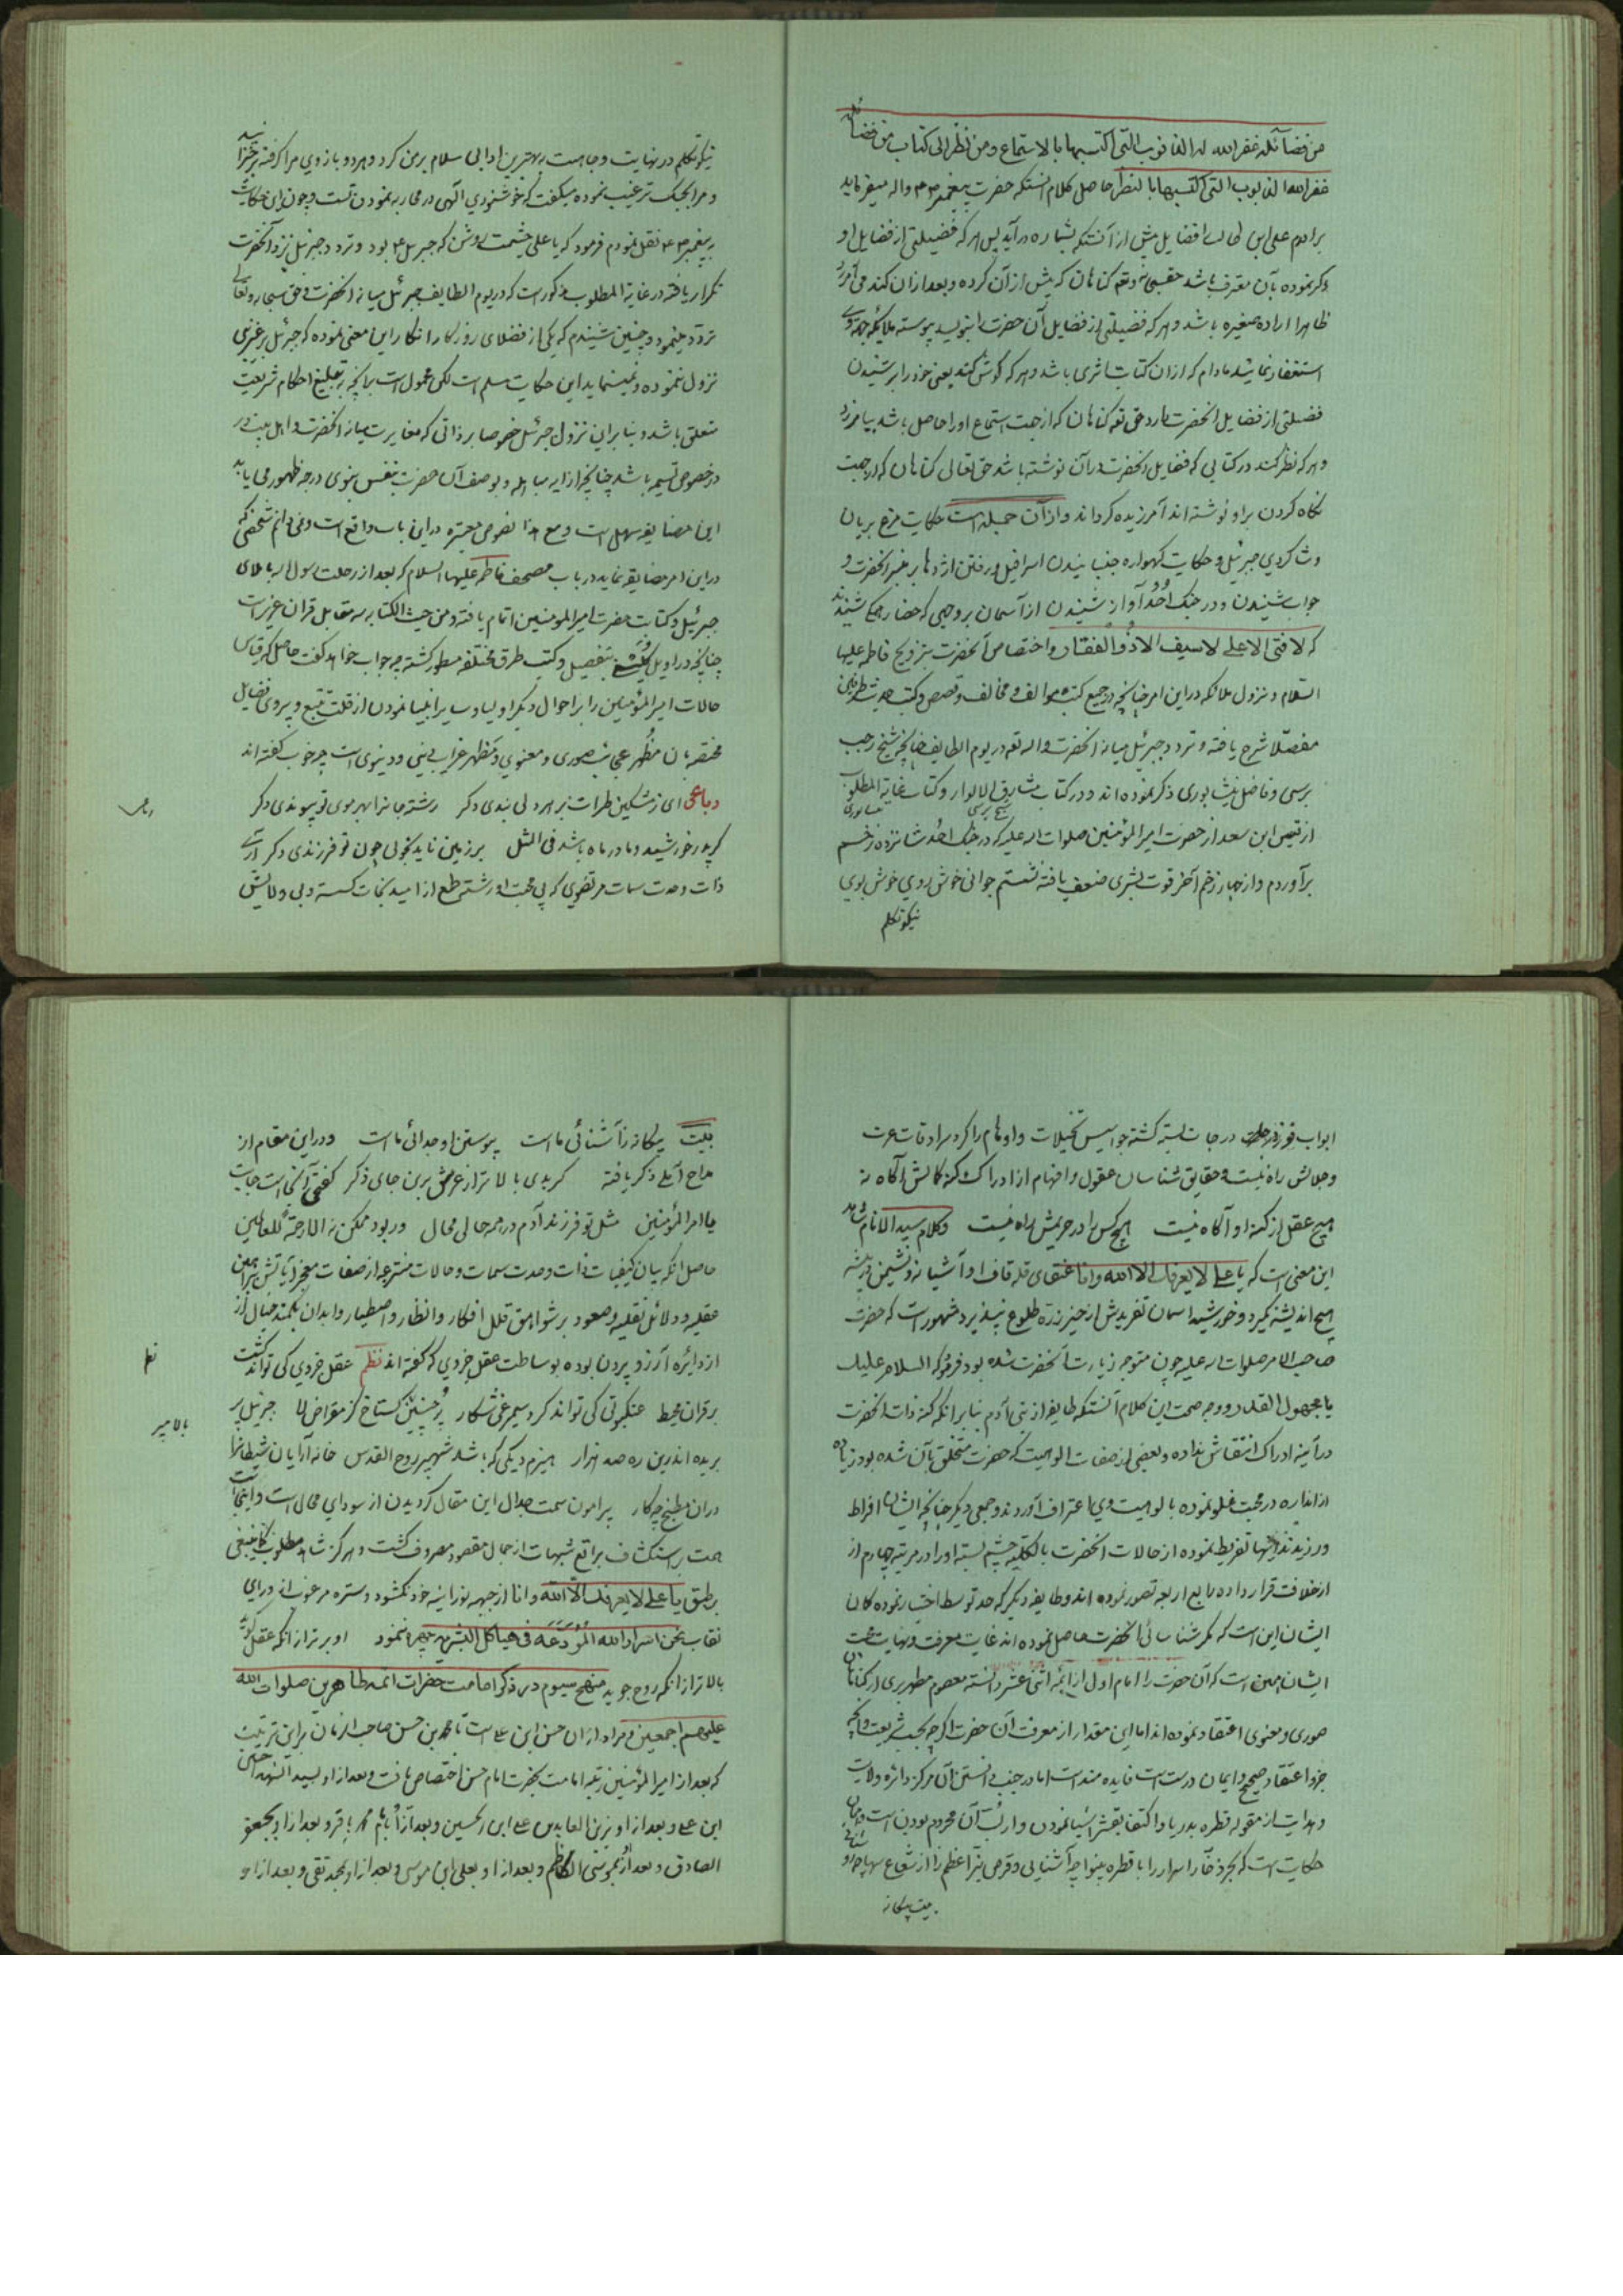 من فضائله غفر الله له الذنوب التی اکتسبها بالاستماع و من نظر الی کتاب من فضائله
غفر الله الذنوب التی اکتسبها بالنظر حاصل کلام آنستکه حضرت پیغمبر صم واله میفرماید
برادرم علی ابن ابی طالب را فضایل بیش از آنستکه بشماره درآید پس هر که فضیلتی از فضایل او
ذکر نموده بآن معترف باشد حقسبحانه وتعم گناهان که پیش از آن کرده و بعد ازان کند می آمرزد
ظاهرا اراده صغیره باشد و هر که فضیلتی از فضایل آن حضرت بنویسد پیوسته ملایکه جهة وی
استغفار نمایند مادام که ازان کتابت اثری باشد و هر که گوش کند یعنی خود را بر شنیدن
فضیلتی از فضایل انحضرت دارد حق تعم گناهان که از جهت استماع او را حاصل باشد بیامرزد
و هر که نظر کند در کتابی که فضایل انحضرت درآن نوشته باشد حق تعالی گناهان که از جهت
نگاه کردن براو نوشته اند آمرزیده گرداند و از آن جمله است حکایت مرغ بریان
و شاکردی جبرئیل و حکایت گهواره جنبانیدن اسرافیل و رفتن اژدها بر منبر انحضرت و
جواب شنیدن و در جنک اُحُد آواز شنیدن از آسمان بروجهی که حضار همکی شنیدند
که لافتی الا علی لاسیف الا ذو الفقار و اختصاص آنحضرت بتزویج فاطمه علیها
السلام و نزول ملائکه در این امر چنانچه در جمیع کتب موالف و مخالف و قصص و کتب حدیث طرفین
مفصلا شرح یافته و تردد جبرئیل میانه انحضرت واله تعم در یوم الطایف چنانچه شیخ رجب
برسی و فاضل نیشابوری ذکر نموده اند و در کتاب مشارق الانوار و کتاب غایة المطلوب
شیخ برسی نیشابوری
از قیس ابن سعد از حضرت امیر المؤمنین صلوات اله علیه که در جنک احُد شانزده زخم
برآوردم و از چهار زخم آخر قوت بشری ضعف یافته نشستم جوانی خوش روی خوش بوی
نیکو تکلم
نیکو تکلم در نهایت وجاهت بهترین ادابی سلام برمن کرد و هر دو بازوی مرا گرفته برخیزانید
و مرا بجنک ترغیب نموده میکفت که خوشنودی آلهی در محاربه نمودن تست و چون این حکایت
به پیغمبر صم نقل نمودم فرمود که یا علی چشمت روشن که جبرئیل بود و تردد جبرئیل نزد آنحضرت
تکرار یافته در غایة المطلوب مذکور است که در یوم الطایف جبرئیل میانه انحضرت و حق سبحانه وتعالی
تردد مینمود و چنین شنیدم که یکی از فضلای روزگار انکار این معنی نموده که جبرئیل بر غیر نبی
نزول ننموده و نمینماید این حکایت مسلم است لکن محمول است بر انچه به تبلیغ احکام شریعت
متعلق باشد و بنابر این نزول جبرئیل خصوصا بر ذاتی که مغایرت میانه انحضرت و اهل بیت در
در خصوص تسیمه باشد چنانچه از ایه مباهله و بوصف آن حضرت بنفس نبوی درجه ظهور می یابد
این مضایقه سهل است و مع هذا نصوص معتبره در این باب واقع است و نمی دانم شخصی که
در این امر مضایقه نماید در باب مصحف فاطمه علیها السلام که بعد از رحلت رسول اله باملای
جبرئیل و کتابت حضرت امیر المومنین اتمام یافته و من حیث الکتابه سه مقابل قران عزیز است
چنانچه در اویل بتفصیل و کتب طرق مختلفه مسطور کشته چه جواب خواهد کفت حاصل که قیاس
حالات امیر المؤمنین را بر احوال دیکر اولیا و سایر انبیا نمودن از قلت تتبع و پیروی فضایل
مختصه بان مظهر عجایب صوری و معنوی و مظهر غرایب دینی و دنیوی است چه خوب کفته اند
رباعی ای ز مشکین طرات بر هر دلی بندی دکر رشته جانرا بهر موی تو پیوندی دکر
کر پدر خورشید و مادر ماه باشد فی المثل بر زمین ناید بخوبی چون تو فرزندی دکر آری
ذات وحدت سمات مرتضوی که بی محبت او رشته طمع از امید نجات کسسته و بی ولایتش
رباعی
ابواب فوز درجات بسته کشته جواسیس تخیلات و اوهام را کرد سرادقات عزت
و جلالش راه نیست و حقایق شناسان عقول و افهام از ادراک کنه کمالش آکاه نه
هیچ عقل از کنه او آکاه نیست هیچ کس را در حریمش راه نیست و کلام سید الانام شاهد
این معنی است که یا علی لا یعرفک الا الله وانا عنقای قله قاف او آشیانه در نشیمن
هیچ اندیشه نکیرد و خورشید اسمان تفریدش از حیز ذره طلوع نپذیرد مشهور است که حضرت
صاحب الامر صلوات اله علیه چون متوجه زیارت آنحضرت شده بود فرمود که السلام علیک
یا مجهول القدر و وجه صحت این کلام آنستکه طایفه از بنی آدم بنابر انکه کنه ذات انحضرت
در آینه ادراک انتقاش نداده و بعضی از صفات الوهیت که حضرت متخلق بآن شده بود زیاده
از اندازه در محبت غلو نموده بالوهیت وی اعتراف آوردند و جمعی دیکر چنانچه ایشان افراط
ورزیدند اینها تفریط نموده از حالات انحضرت بالکلیه چشم بسته او را در مرتبه چهارم از
از خلافت قرار داده رابع اربعه تصور نموده اند و طایفه دیکر که حد توسط اختیار نموده کمان
ایشان این است که مکر شناسائی انحضرت حاصل نموده اند غایت معرفت و نهایت محبت
ایشان همین است که آن حضرت را امام اول از ائمه اثنی عشر دانسته معصوم مطهر بری از کناهان
صوری و معنوی اعتقاد نموده اند اما این مقدار از معرفت آن حضرت اکرچه بحسب شریعت و انچه
جزو اعتقاد صحیح و ایمان درست است فایده مند است اما در جنب دانستن آن مرکز دائره ولایت
و هدایت از مقوله قطره بدریا و اکتفا بقشر اشیا نمودن و از لُب آن محروم بودن است و همان
حکایت است که بحر ذخار اسرار را با قطره بینوا چه آشنایی و قرص نیر اعظم را از شعاع سها چه روشنائی
بیت بیکانه
بیت بیکانه ز آشنائی ماست پیوستن او جدائی ماست و در این مقام از
مداح آملی ذکر یافته کر بدی بالاتر از عرش برین جای دکر کفتمی آنجاست جایت
یا امیر المؤمنین مثل تو فرزند آدم در همه حالی محال ور بود ممکن نه الا رحمةً للعالمین
حاصل انکه بیان کیفیات ذات وحدت سمات و حالات منتزعه از صفات معجز آیاتش ببراهین
عقلیه و دلائل نقلیه و صعود بر شواهق قلل افکار و انظار و اصطیاد وابدان بکمند خیال از
از دائره آرزو بیرون بوده بوساطت عقل جزوی که کفته اند نظم عقل جزوی کی تواند کشت
بر قران محیط عنکبوتی کی تواند کرد سیمرغی شکار پُر چنین کستاخ کز مقراض لا جبرئیل پر
بریده اندرین ره صد هزار هیزم دیکی که باشد شهپر روح القدس خانه آرایان شیطانرا
دران مطبخ چکار پیرامون سمت جدال این مقال کردیدن از سودای محالست و اینجا
همت بر استکشاف براقع شبهات از جمال مقصود مصروف کشت و هرکز شاهد مطلوب کماینبغی
بر طبق یا علی لایعرفک الا الله وانا از چهره نورانیه خود نکشود و ستره مرغوب از ورای
نقاب نحن اسرار الله المُودَعَه فی هیاکل البشریه چهره ننمود او برتر از آنکه عقل کوید
بالاتر از آنکه روح جوید منهج سیوم در ذکر امامت حضرات ائمه طاهرین صلوات الله
علیهم اجمعین و مراد ازان حسن ابن علی است تا محمد بن حسن صاحب الزمان براین ترتیب
که بعد از امیر المؤمنین رتبه امامت بحضرت امام حسن اختصاص یافت و بعد از او بسید الشهدا حسین
ابن علی و بعد از او بزین العابدین علی ابن الحسین و بعد ازو بامام محمد باقر و بعد ازاو بجعفر
الصادق و بعد ازو بموسی الکاظم و بعد ازاو بعلی ابن موسی و بعد ازاو بمحمد تقی و بعد ازاو
نظم